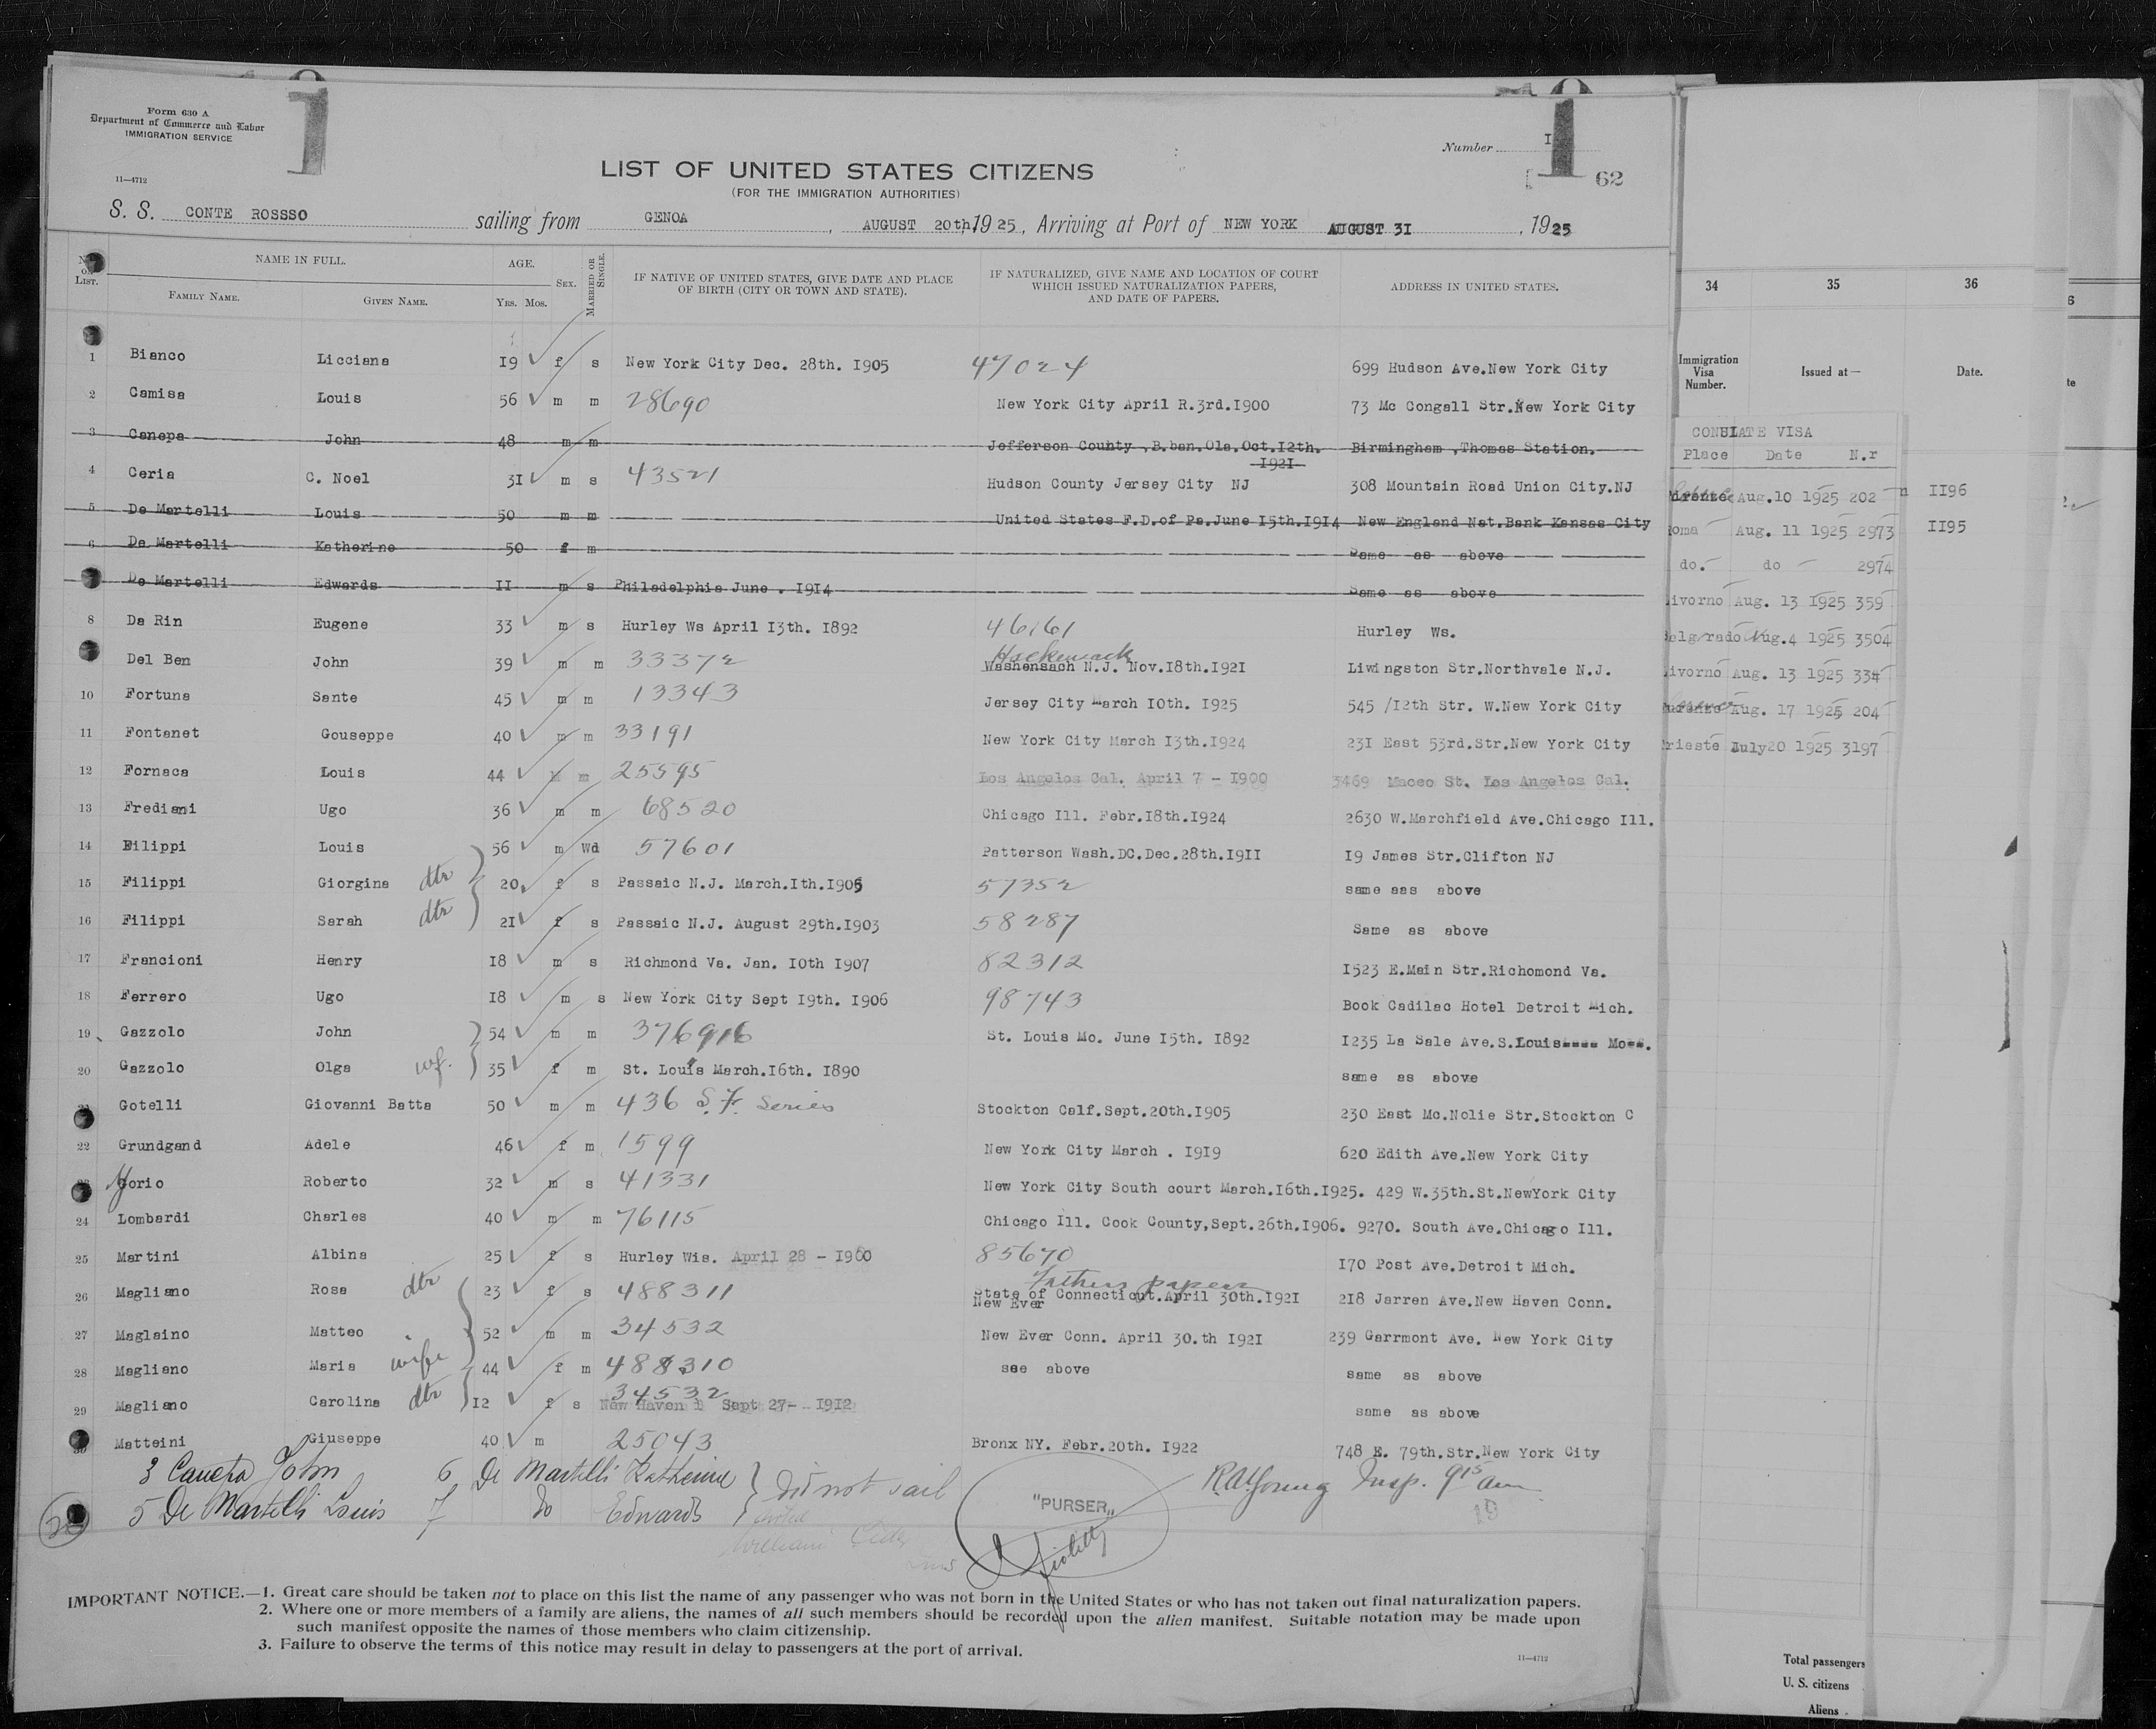 Form 630 A
Department of Commerce and Labor
IMMIGRATION SERVICE
11—4712
1
1
Number I
62
LIST OF UNITED STATES CITIZENS
(FOR THE IMMIGRATION AUTHORITIES)
S. S. CONTE ROSSSO sailing from GENOA, AUGUST 20th, 1925, Arriving at Port of NEW YORK AUGUST 31, 1925
No. on List. NAME IN FULL. AGE. Sex. Married or Single. IF NATIVE OF UNITED STATES, GIVE DATE AND PLACE OF BIRTH (CITY OR TOWN AND STATE). IF NATURALIZED, GIVE NAME AND LOCATION OF COURT WHICH ISSUED NATURALIZATION PAPERS, AND DATE OF PAPERS. ADDRESS IN UNITED STATES.
Family Name. Given Name. Yrs. Mos.
1 Bianco Licciana 19 f s New York City Dec. 28th. 1905 47024 699 Hudson Ave.New York City
2 Camisa Louis 56 m m 28690 New York City April R.3rd.1900 73 Mc Congall Str.New York City
3 Canepa John 48 m m Jefferson County ,B.ban.Ola.Oct.12th. 1921 Birmingham ,Thomas Station.
4 Ceria C. Noel 31 m s 43521 Hudson County Jersey City NJ 308 Mountain Road Union City.NJ
5 De Martelli Louis 50 m m United States F.D.of Pa.June 15th.1914 New England Nat.Bank Kansas City
6 De Martelli Katherine 50 f m Same as above
De Martelli Edwards 11 m s Philadelphia June . 1914 Same as above
8 Da Rin Eugene 33 m s Hurley Ws April 13th. 1892 46161 Hurley Ws.
Del Ben John 39 m m 33372 Hackensack Washensach N.J. Nov.18th.1921 Liwingston Str.Northvale N.J.
10 Fortuna Sante 45 m m 13343 Jersey City March 10th. 1925 545 /12th Str. W.New York City
11 Fontanet Gouseppe 40 m m 33191 New York City March 13th.1924 231 East 53rd.Str.New York City
12 Fornaca Louis 44 m m 25595 Los Angelos Cal. April 7 - 1900 3469 Maceo St. Los Angelos Cal.
13 Frediani Ugo 36 m m 68520 Chicago Ill. Febr.18th.1924 2630 W.Marchfield Ave.Chicago Ill.
14 Filippi Louis 56 m Wd 57601 Patterson Wash.DC.Dec.28th.1911 19 James Str.Clifton NJ
15 Filippi Giorgina dtr 20 f s Passaic N.J. March.1th.1905 57352 same aas above
16 Filippi Sarah dtr 21 f s Passaic N.J. August 29th.1903 58287 Same as above
17 Francioni Henry 18 m s Richmond Va. Jan. 10th 1907 82312 1523 E.Main Str.Richomond Va.
18 Ferrero Ugo 18 m s New York City Sept 19th. 1906 98743 Book Cadilac Hotel Detroit Mich.
19 Gazzolo John 54 m m 376916 St. Louis Mo. June 15th. 1892 1235 La Sale Ave.S.Louis Mo
20 Gazzolo Olga wf. 35 f m St. Louis March.16th. 1890 same as above
Gotelli Giovanni Batta 50 m m 436 S.F. Series Stockton Calf.Sept.20th.1905 230 East Mc.Nolie Str.Stockton C
22 Grundgand Adele 46 f m 1599 New York City March . 1919 620 Edith Ave.New York City
Yorio Roberto 32 m s 41331 New York City South court March.16th.1925. 429 W.35th.St.NewYork City
24 Lombardi Charles 40 m m 76115 Chicago Ill. Cook County,Sept.26th.1906. 9270. South Ave.Chicago Ill.
25 Martini Albina 25 f s Hurley Wis. April 28 - 1900 85670 170 Post Ave.Detroit Mich.
26 Magliano Rosa dtr 23 f s 488311 Fathers papers State of Connecticut.April 30th.1921 New Ever 218 Jarren Ave.New Haven Conn.
27 Maglaino Matteo 52 m m 34532 New Ever Conn. April 30.th 1921 239 Garrmont Ave. New York City
28 Magliano Maria wife 44 f m 488310 see above same as above
29 Magliano Carolina dtr 12 f s 34532 New Haven Sept 27- 1912 same as above
30 Matteini Giuseppe 40 m 25043 Bronx NY. Febr.20th. 1922 748 E. 79th.Str.New York City
3 Canepa John 6 De Martelli Katherine } did not sail
5 De Martelli Louis 7 do Edwards
"PURSER"
R.A. Young Insp. 9 15 am
19
IMPORTANT NOTICE.—1. Great care should be taken not to place on this list the name of any passenger who was not born in the United States or who has not taken out final naturalization papers.
2. Where one or more members of a family are aliens, the names of all such members should be recorded upon the alien manifest. Suitable notation may be made upon
such manifest opposite the names of those members who claim citizenship.
3. Failure to observe the terms of this notice may result in delay to passengers at the port of arrival.
11—4712
34 35 36
Immigration Visa Number. Issued at— Date.
CONSULATE VISA
Place Date N.r
Aug.10 1925 202 1196
oma Aug. 11 1925 2973 1195
do. do 2974
ivorno Aug. 13 1925 359
elgrado Aug.4 1925 3504
ivorno Aug. 13 1925 334
Aug. 17 1925 204
rieste July20 1925 3197
Total passengers
U. S. citizens
Aliens